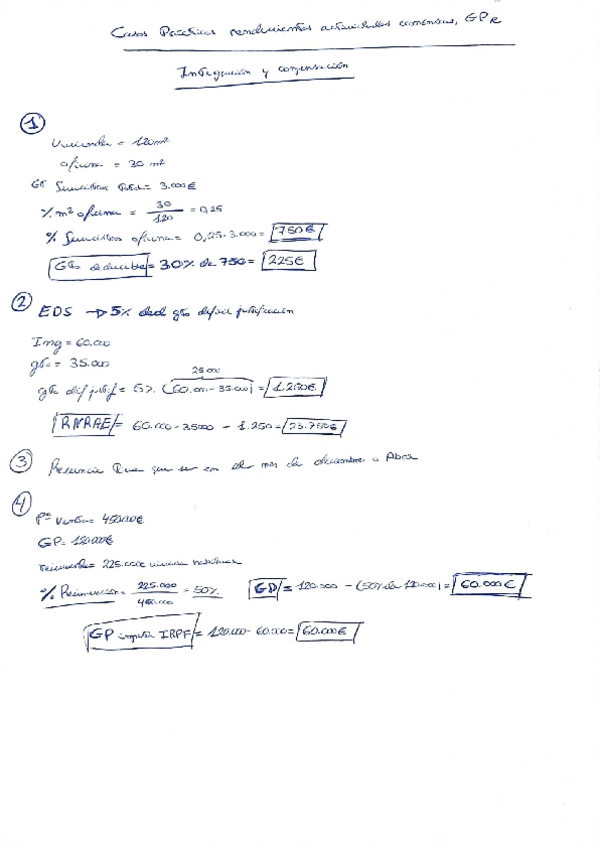 Casos Prácticos rendimientos actividades económicas, GP
Integración y compensación
1
Vivienda = 120m²
oficina = 30 m²
Gto Suministros total = 3.000€
% m² oficina = 30/120 = 0,25
% Suministros oficina = 0,25·3.000 = 750€
Gto deducible = 30% de 750 = 225€
2 EDS → 5% ded gto difícil justificación
Ing = 60.000
gto = 35.000
25000
gto dif justif = 5% (60.000 - 35.000) = 1.250€
RNRAE = 60.000 - 35000 - 1.250 = 23.750€
3 que ser en mes de diciembre o
4
Pº Venta = 450.000€
GP = 120.000€
225.000€ vivienda habitual
% Reinversión = 225.000/450.000 = 50% = 120.000 - (50% de 120.000) = 60.000€
GP IRPF = 120.000 - 60.000 = 60.000€